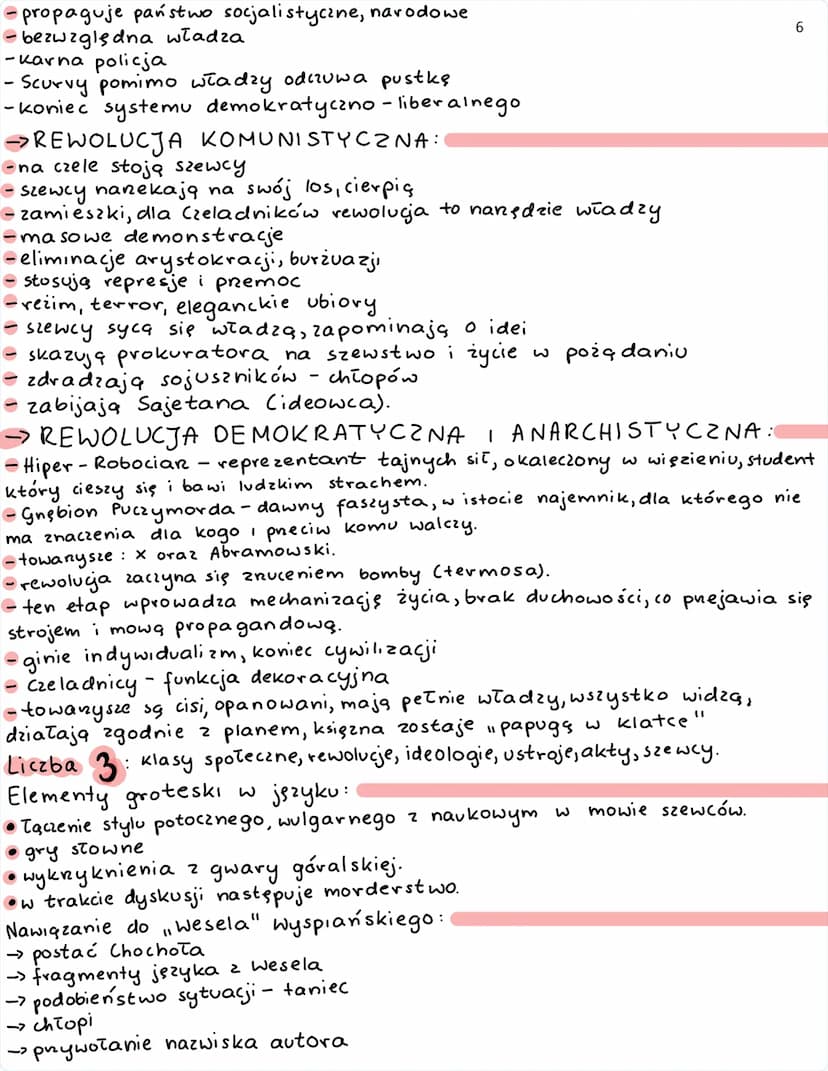 - propaguje państwo socjalistyczne, narodowe
6
- bezwzględna władza
- karna policja
- Scurvy pomimo władzy odczuwa pustkę
- koniec systemu demokratyczno - liberalnego
→ REWOLUCJA KOMUNISTYCZNA:
- na czele stoją szewcy
- szewcy narzekają na swój los, cierpią
- zamieszki, dla Czeladników rewolucja to narzędzie władzy
- masowe demonstracje
- eliminacje arystokracji, burżuazji
- stosują represje i przemoc
- reżim, terror, eleganckie ubiory
- szewcy sycą się władzą, zapominają o idei
- skazują prokuratora na szewstwo i życie w pożądaniu
- zdradzają sojuszników - chłopów
- zabijają Sajetana (ideowca).
→ REWOLUCJA DEMOKRATYCZNA I ANARCHISTYCZNA:
- Hiper - Robociarz - reprezentant tajnych sił, okaleczony w więzieniu, student
który cieszy się i bawi ludzkim strachem.
- Gnębion Puczymorda - dawny faszysta, w istocie najemnik, dla którego nie
ma znaczenia dla kogo i przeciw komu walczy.
- towarzysze : X oraz Abramowski.
- rewolucja zaczyna się zrzuceniem bomby (termosa).
- ten etap wprowadza mechanizację życia, brak duchowości, co przejawia się
strojem i mową propagandową.
- ginie indywidualizm, koniec cywilizacji
- Czeladnicy - funkcja dekoracyjna
- towarzysze są cisi, opanowani, mają pełnie władzy, wszystko widzą,
działają zgodnie z planem, księżna zostaje „papugą w klatce"
Liczba 3: klasy społeczne, rewolucje, ideologie, ustroje, akty, szewcy.
Elementy groteski w języku:
• łączenie stylu potocznego, wulgarnego z naukowym w mowie szewców.
• gry słowne
• wykrzyknienia z gwary góralskiej.
• w trakcie dyskusji następuje morderstwo.
Nawiązanie do „Wesela" Wyspiańskiego:
→ postać Chochoła
→ fragmenty języka z Wesela
→ podobieństwo sytuacji - taniec
→ chłopi
→ przywołanie nazwiska autora